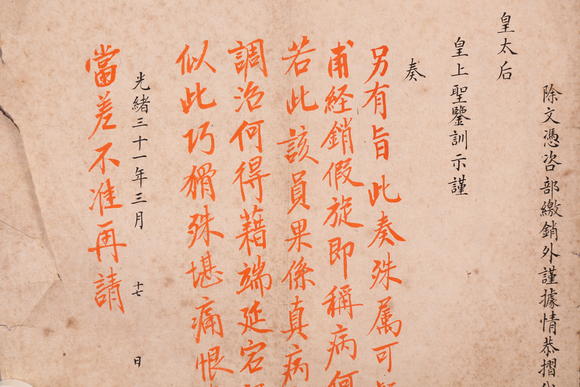 除文憑咨部繳銷外謹據情恭摺
皇太后
皇上聖鑒訓示謹
奏
另有旨此奏殊屬可
甫經銷假旋即稱病何
若此該員果係真病
調治何得藉端延宕
似此巧猾殊堪痛恨
光緒三十一年三月十七日
當差不准再請